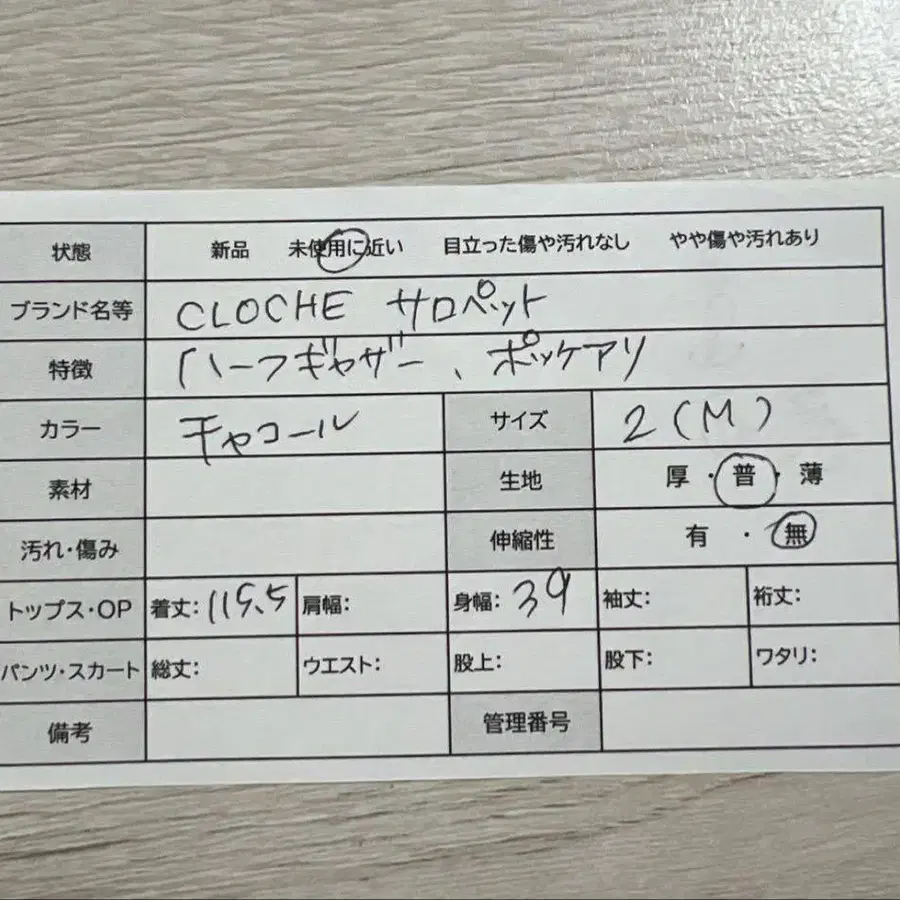 状態 新品 未使用に近い 目立った傷や汚れなし やや傷や汚れあり
ブランド名等 CLOCHE サロペット
特徴 ハーフギャザー、ポッケアリ
カラー チャコール サイズ 2(M)
素材 生地 厚・普・薄
汚れ・傷み 伸縮性 有・無
トップス・OP 着丈: 115.5 肩幅: 身幅: 39 袖丈: 裄丈:
パンツ・スカート 総丈: ウエスト: 股上: 股下: ワタリ:
備考 管理番号